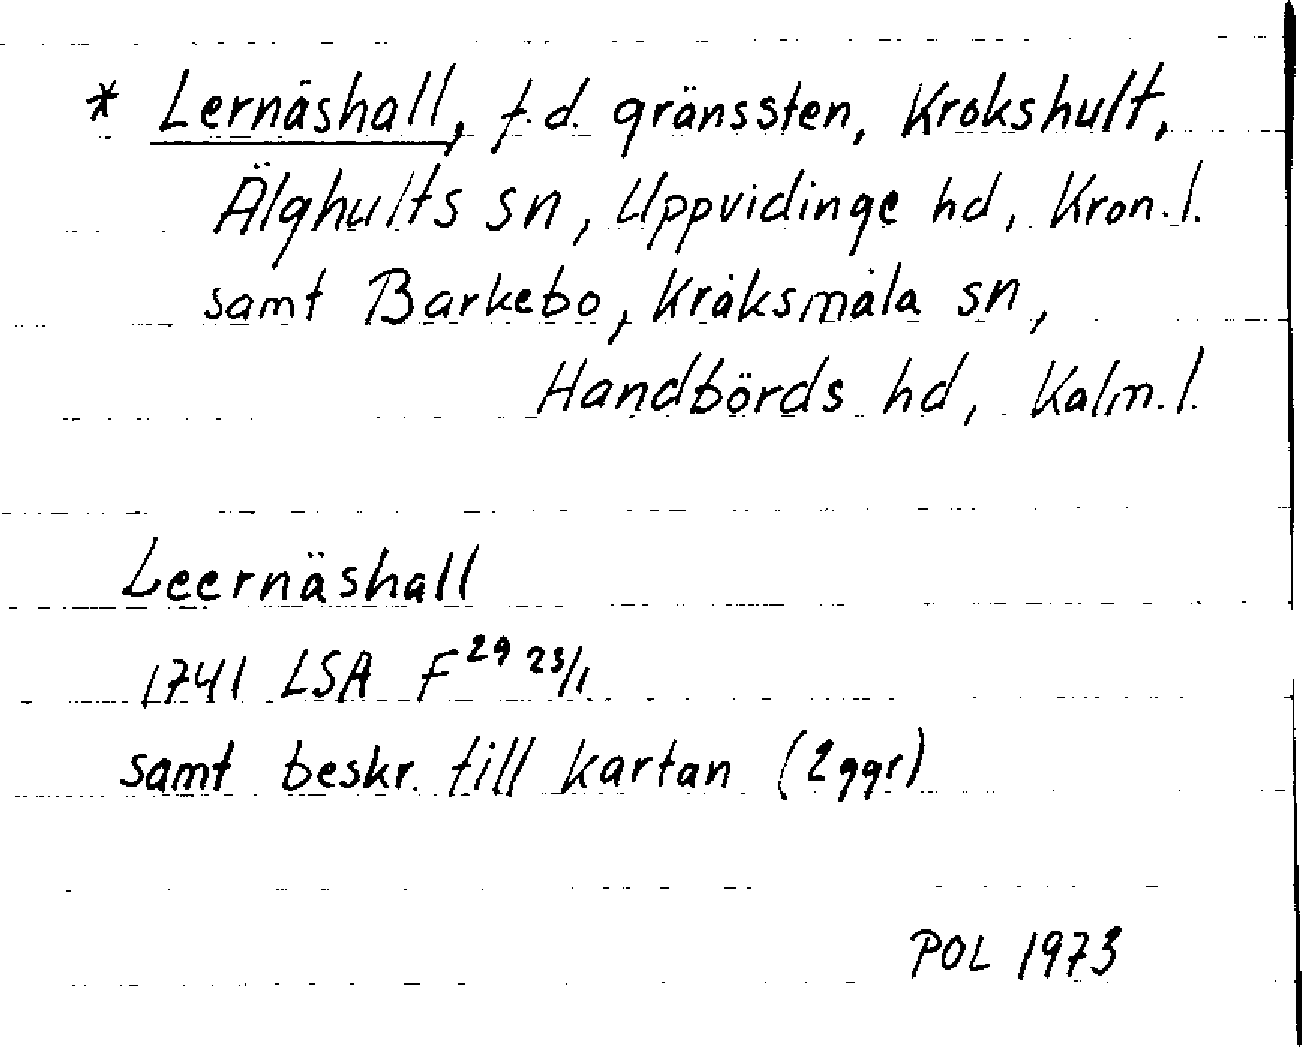 * Lernäshall, f.d. gränssten, Krokshult,
Älghults sn, Uppvidinge hd, Kron. l.
samt Barkebo, Kråksmåla sn,
Handbörds hd, Kalm. l.
Leernäshall
1741 LSA F²⁹ ²³/₁
samt beskr. till kartan (2 ggr)
POL 1973